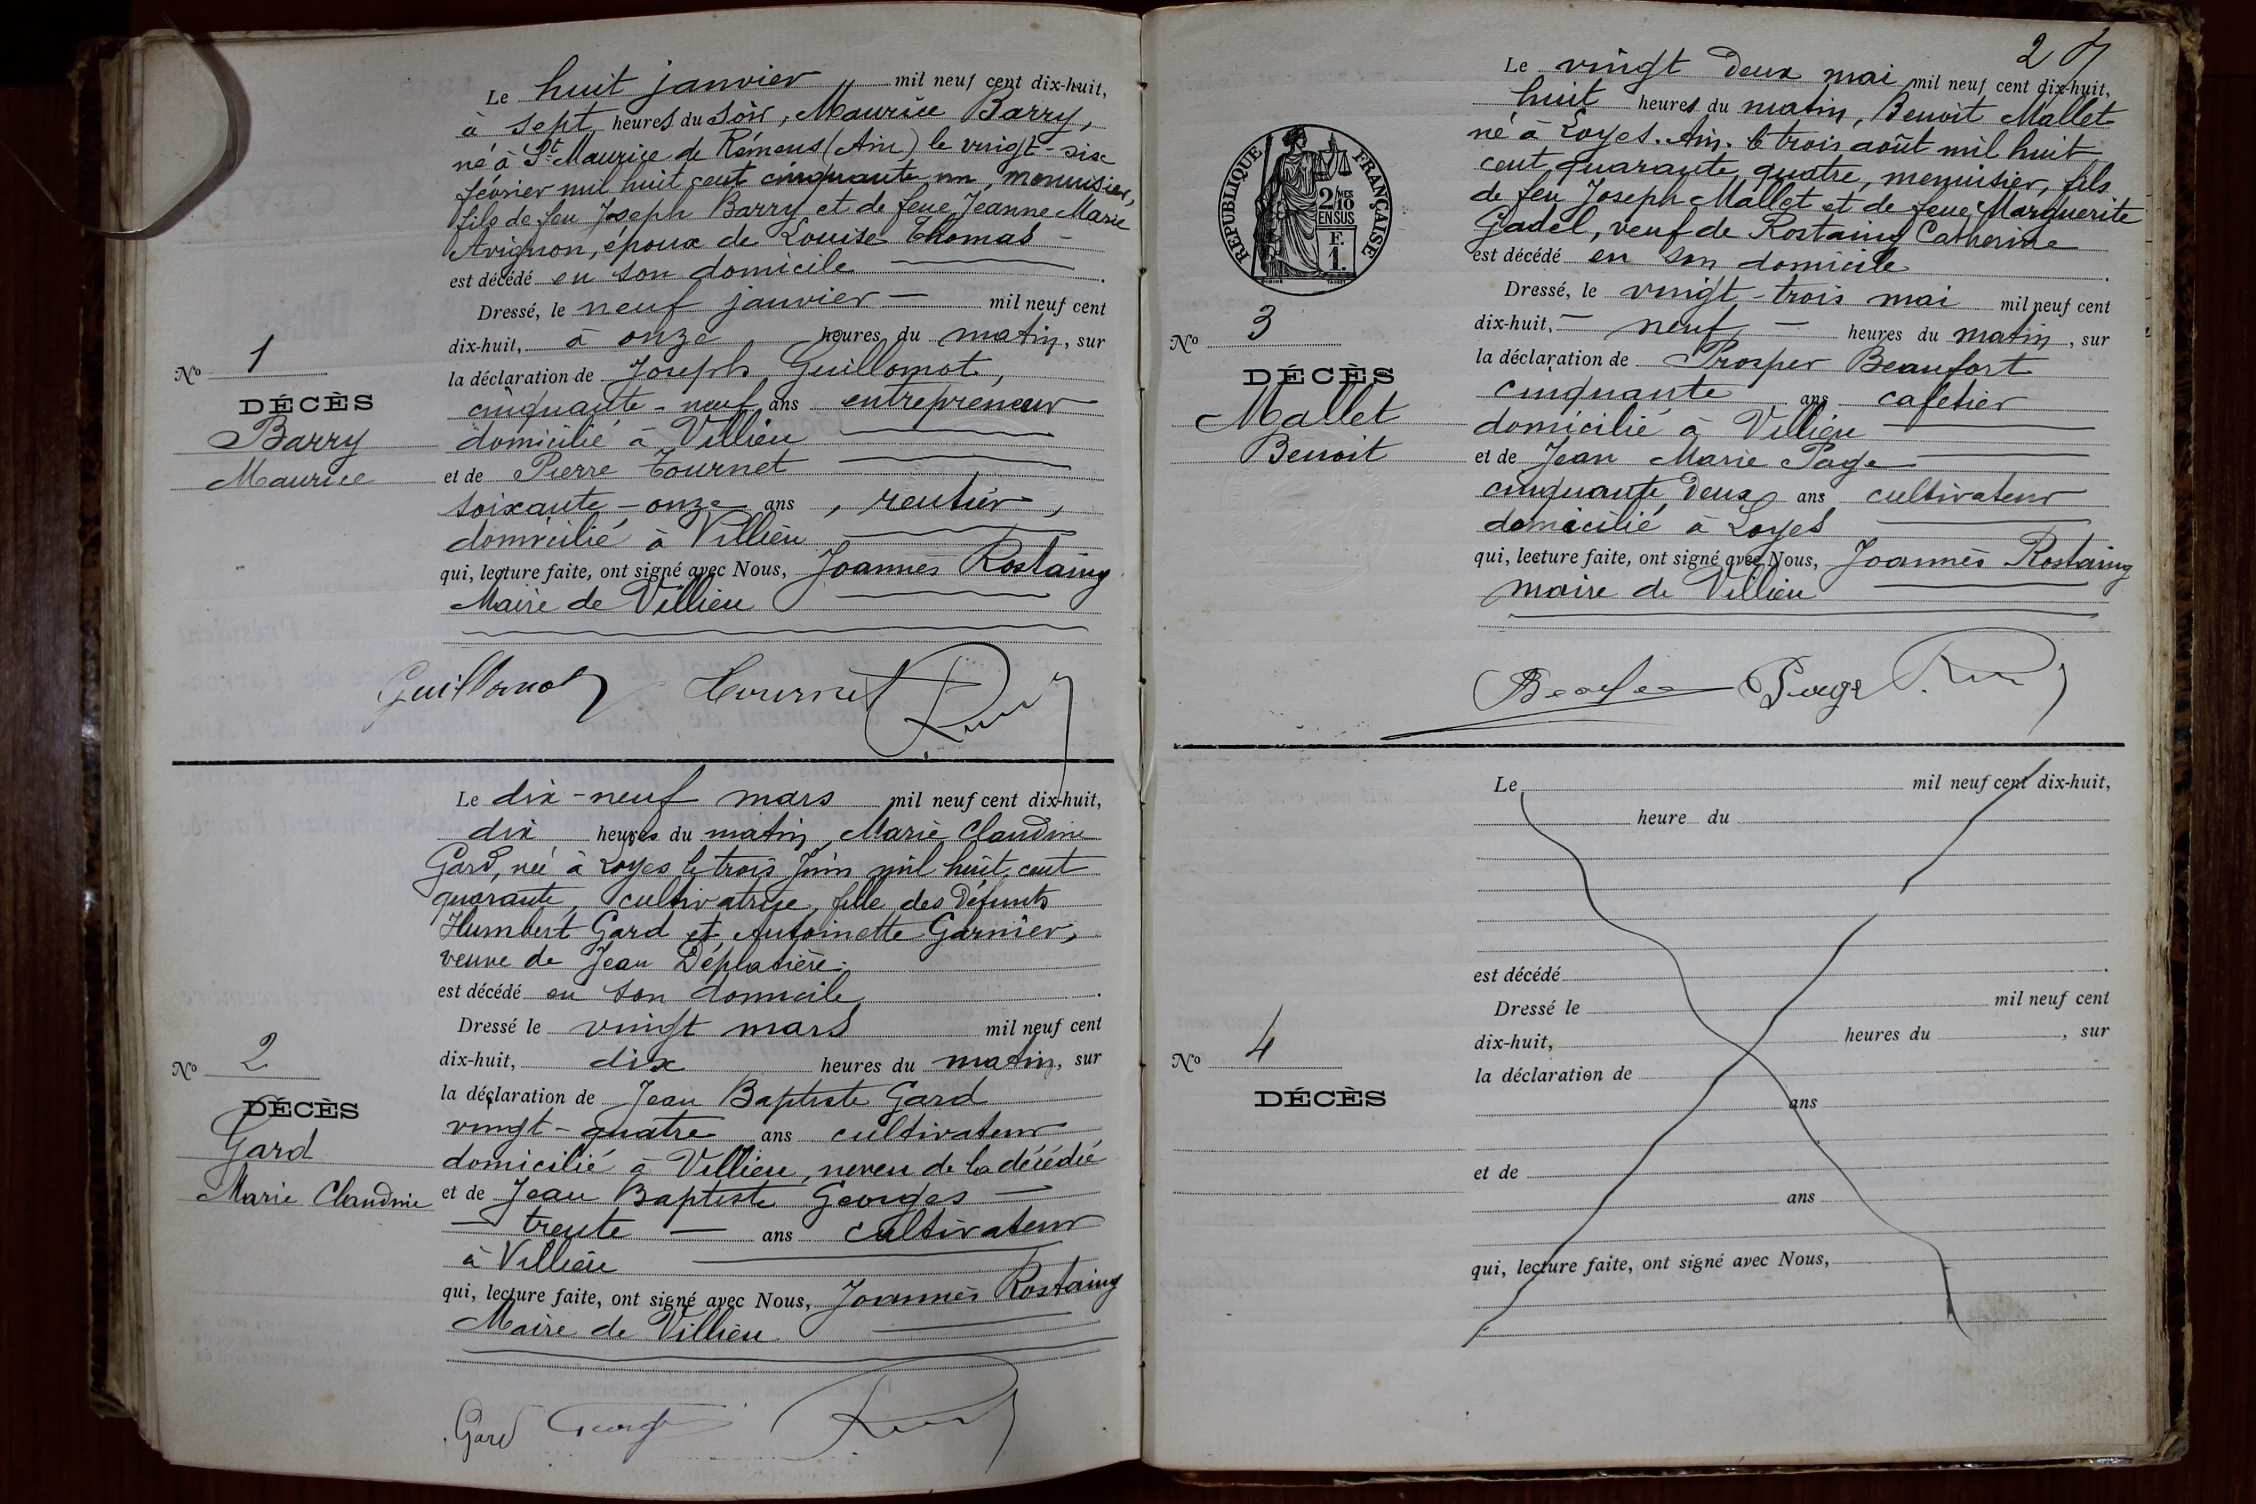 Le huit janvier mil neuf cent dix-huit,
à sept heures du soir, Maurice Barry,
né à St Maurice de Rémens (Ain) le vingt-six
février mil huit cent cinquante un, menuisier,
fils de feu Joseph Barry et de feue Jeanne Marie
Avignon, époux de Louise Thomas
est décédé en son domicile
Dressé, le neuf janvier mil neuf cent
dix-huit, à onze heures du matin, sur
la déclaration de Joseph Guillomot,
cinquante-neuf ans entrepreneur
domicilié à Villieu
et de Pierre Tournet
soixante-onze ans, rentier,
domicilié à Villieu
qui, lecture faite, ont signé avec Nous, Joannès Rostaing
Maire de Villieu
No 1
DÉCÈS
Barry
Maurice
Guillomot Tournet
Le dix-neuf mars mil neuf cent dix-huit,
dix heures du matin, Marie Claudine
Gard, née à Loyes le trois Juin mil huit cent
quarante, cultivatrice, fille des défunts
Humbert Gard et Antoinette Garnier,
veuve de Jean Déplatière.
est décédé en son domicile
Dressé le vingt mars mil neuf cent
dix-huit, dix heures du matin, sur
la déclaration de Jean Baptiste Gard
vingt-quatre ans cultivateur
domicilié à Villieu, neveu de la décédée
et de Jean Baptiste Georges
trente ans cultivateur
à Villieu
qui, lecture faite, ont signé avec Nous, Joannès Rostaing
Maire de Villieu
No 2
DÉCÈS
Gard
Marie Claudine
Gard
2
Le vingt deux mai mil neuf cent dix-huit,
huit heures du matin, Benoit Mallet
né à Loyes. Ain. le trois août mil huit
cent quarante quatre, menuisier, fils
de feu Joseph Mallet et de feue Marguerite
Gadel, veuf de Rostaing Catherine
est décédé en son domicile
Dressé, le vingt-trois mai mil neuf cent
dix-huit, neuf heures du matin, sur
la déclaration de Prosper Beaufort
cinquante ans cafetier
domicilié à Villieu
et de Jean Marie Page
cinquante deux ans cultivateur
domicilié à Loyes
qui, lecture faite, ont signé avec Nous, Joannès Rostaing
maire de Villieu
RÉPUBLIQUE FRANÇAISE
2/10 MES
EN SUS
F.
1.
No 3
DÉCÈS
Mallet
Benoit
Le mil neuf cent dix-huit,
heure du
est décédé
Dressé le mil neuf cent
dix-huit, heures du , sur
la déclaration de
ans
et de
ans
qui, lecture faite, ont signé avec Nous,
No 4
DÉCÈS